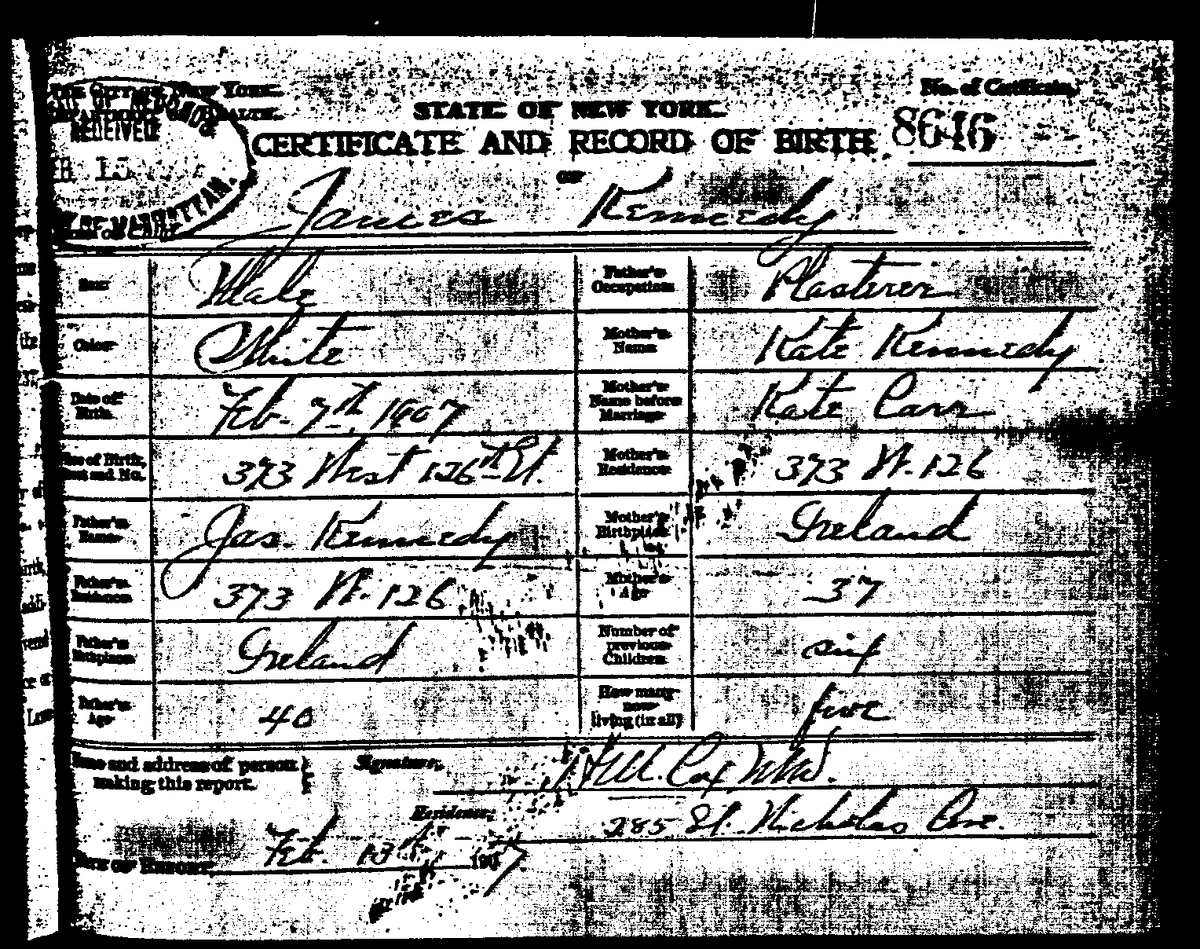 The City of New York. No. of Certificate,
DEPARTMENT OF HEALTH.
STATE OF NEW YORK.
RECEIVED
CERTIFICATE AND RECORD OF BIRTH 8646
15
OF
MANHATTAN.
James Kennedy
Sex Male Father's Occupation Plasterer
Colour White Mother's Name Kate Kennedy
Date of Birth. Feb. 7th, 1907 Mother's Name before Marriage Kate Carr
of Birth, and No. 373 West 126th St. Mother's Residence 373 W. 126
Father's Name Jas. Kennedy Mother's Birthplace Ireland
Father's Residence 373 W. 126 Mother's Age 37
Father's Birthplace Ireland Number of previous Children six
Father's Age 40 How many now living (in all) five
Name and address of person making this report. Signature, Cox M.D.
Residence, 285 St. Nicholas Ave.
Date of Report, Feb. 13th 1907